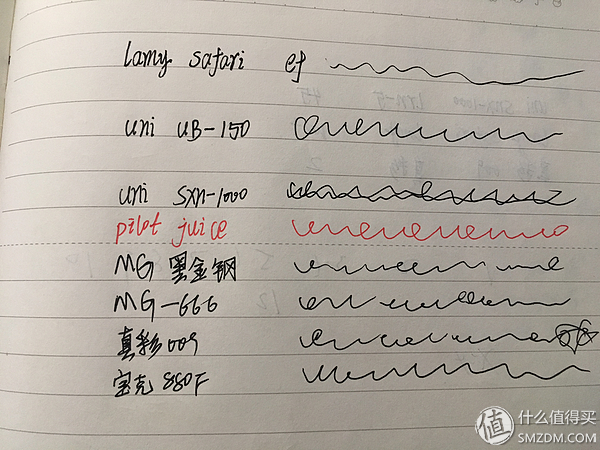 lamy safari ef
uni UB-150
uni sxn-1000
pilot juice
MG 黑金钢
MG-666
真彩009
宝克 880F
值 什么值得买
SMZDM.COM